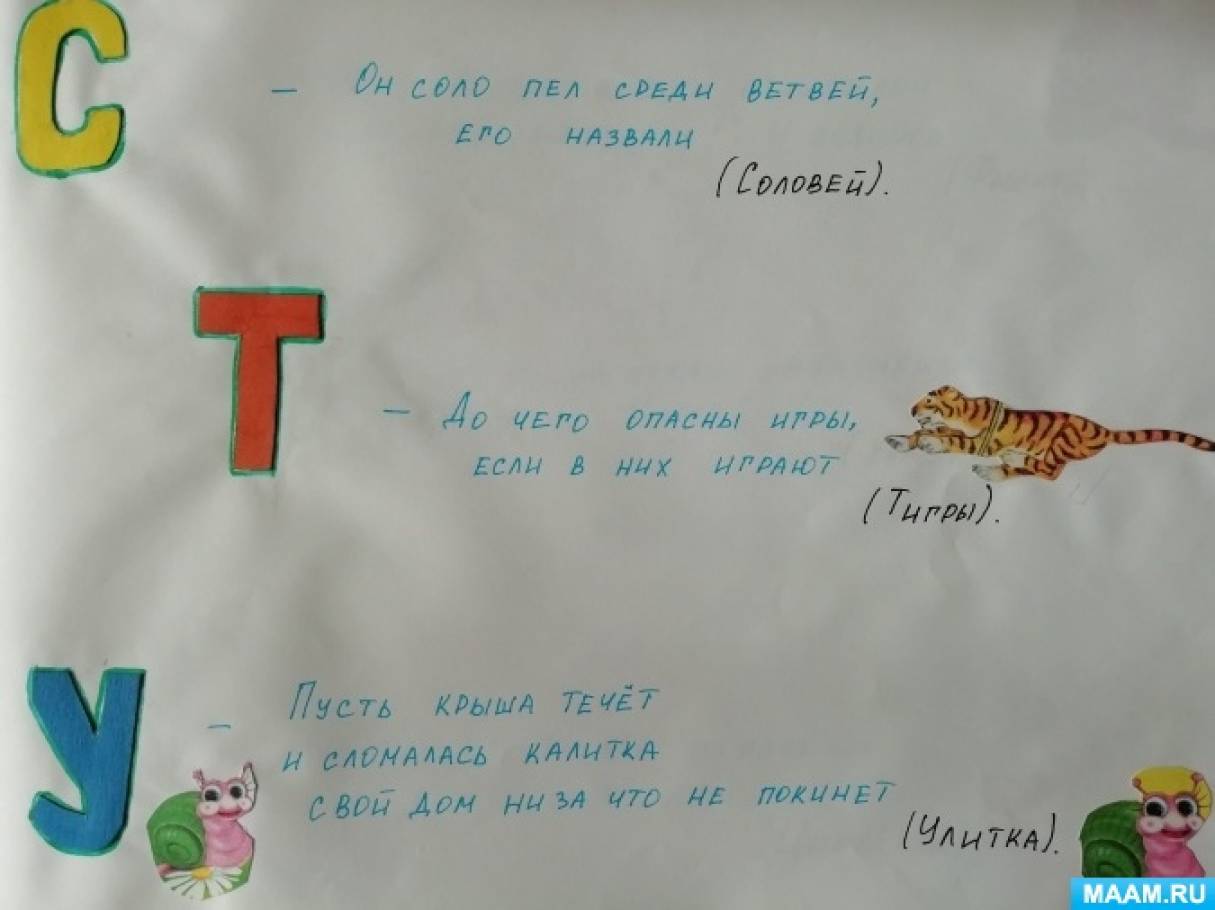 С
– Он соло пел среди ветвей,
его назвали
(Соловей).
Т
– До чего опасны игры,
если в них играют
(Тигры).
У
– Пусть крыша течёт
и сломалась калитка
свой дом ни за что не покинет
(Улитка).
MAAM.RU